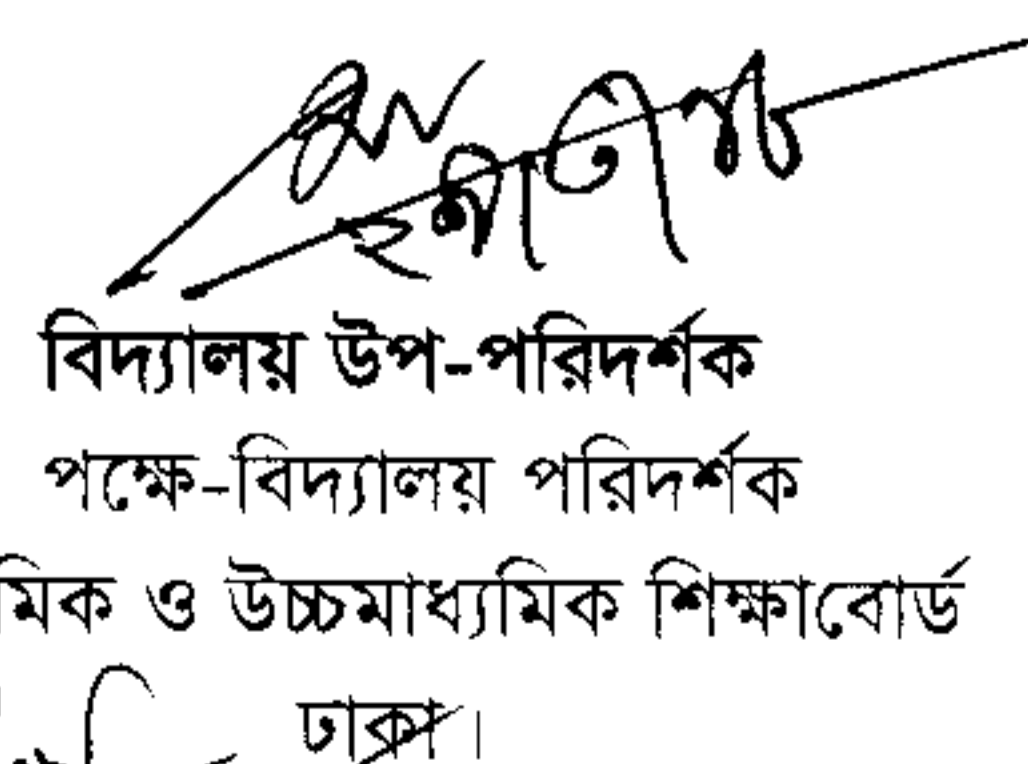 বিদ্যালয় উপ-পরিদর্শক
পক্ষে-বিদ্যালয় পরিদর্শক
মিক ও উচ্চমাধ্যমিক শিক্ষাবোর্ড
ঢাকা।